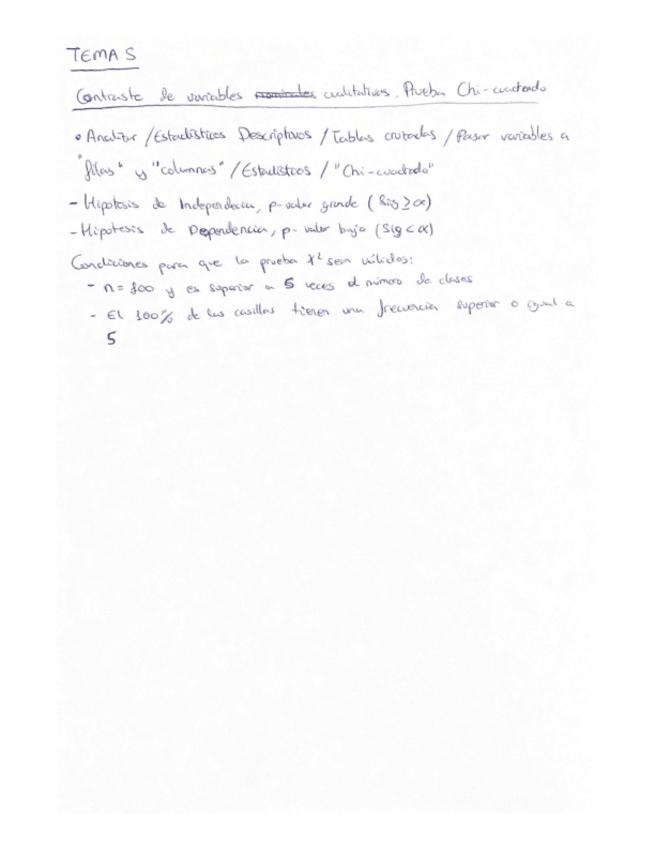 TEMA 5
Contraste de variables nominales cualitativas. Prueba Chi-cuadrado
• Analizar / Estadísticos Descriptivos / Tablas cruzadas / Pasar variables a
"filas" y "columnas" / Estadísticos / "Chi-cuadrado"
- Hipotesis de Independencia, p-valor grande (Sig ≥ α)
- Hipotesis de Dependencia, p-valor bajo (Sig < α)
Condiciones para que la prueba X² sean válidos:
- n = 100 y es superior a 5 veces el número de clases
- El 100% de las casillas tienen una frecuencia superior o igual a
5